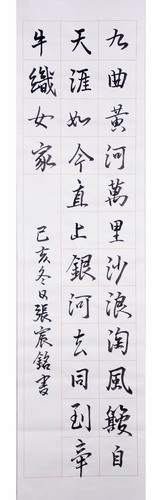 九曲黃河萬里沙浪淘風簸自
天涯如今直上銀河去同到牽
牛織女家
己亥冬日張宸銘書